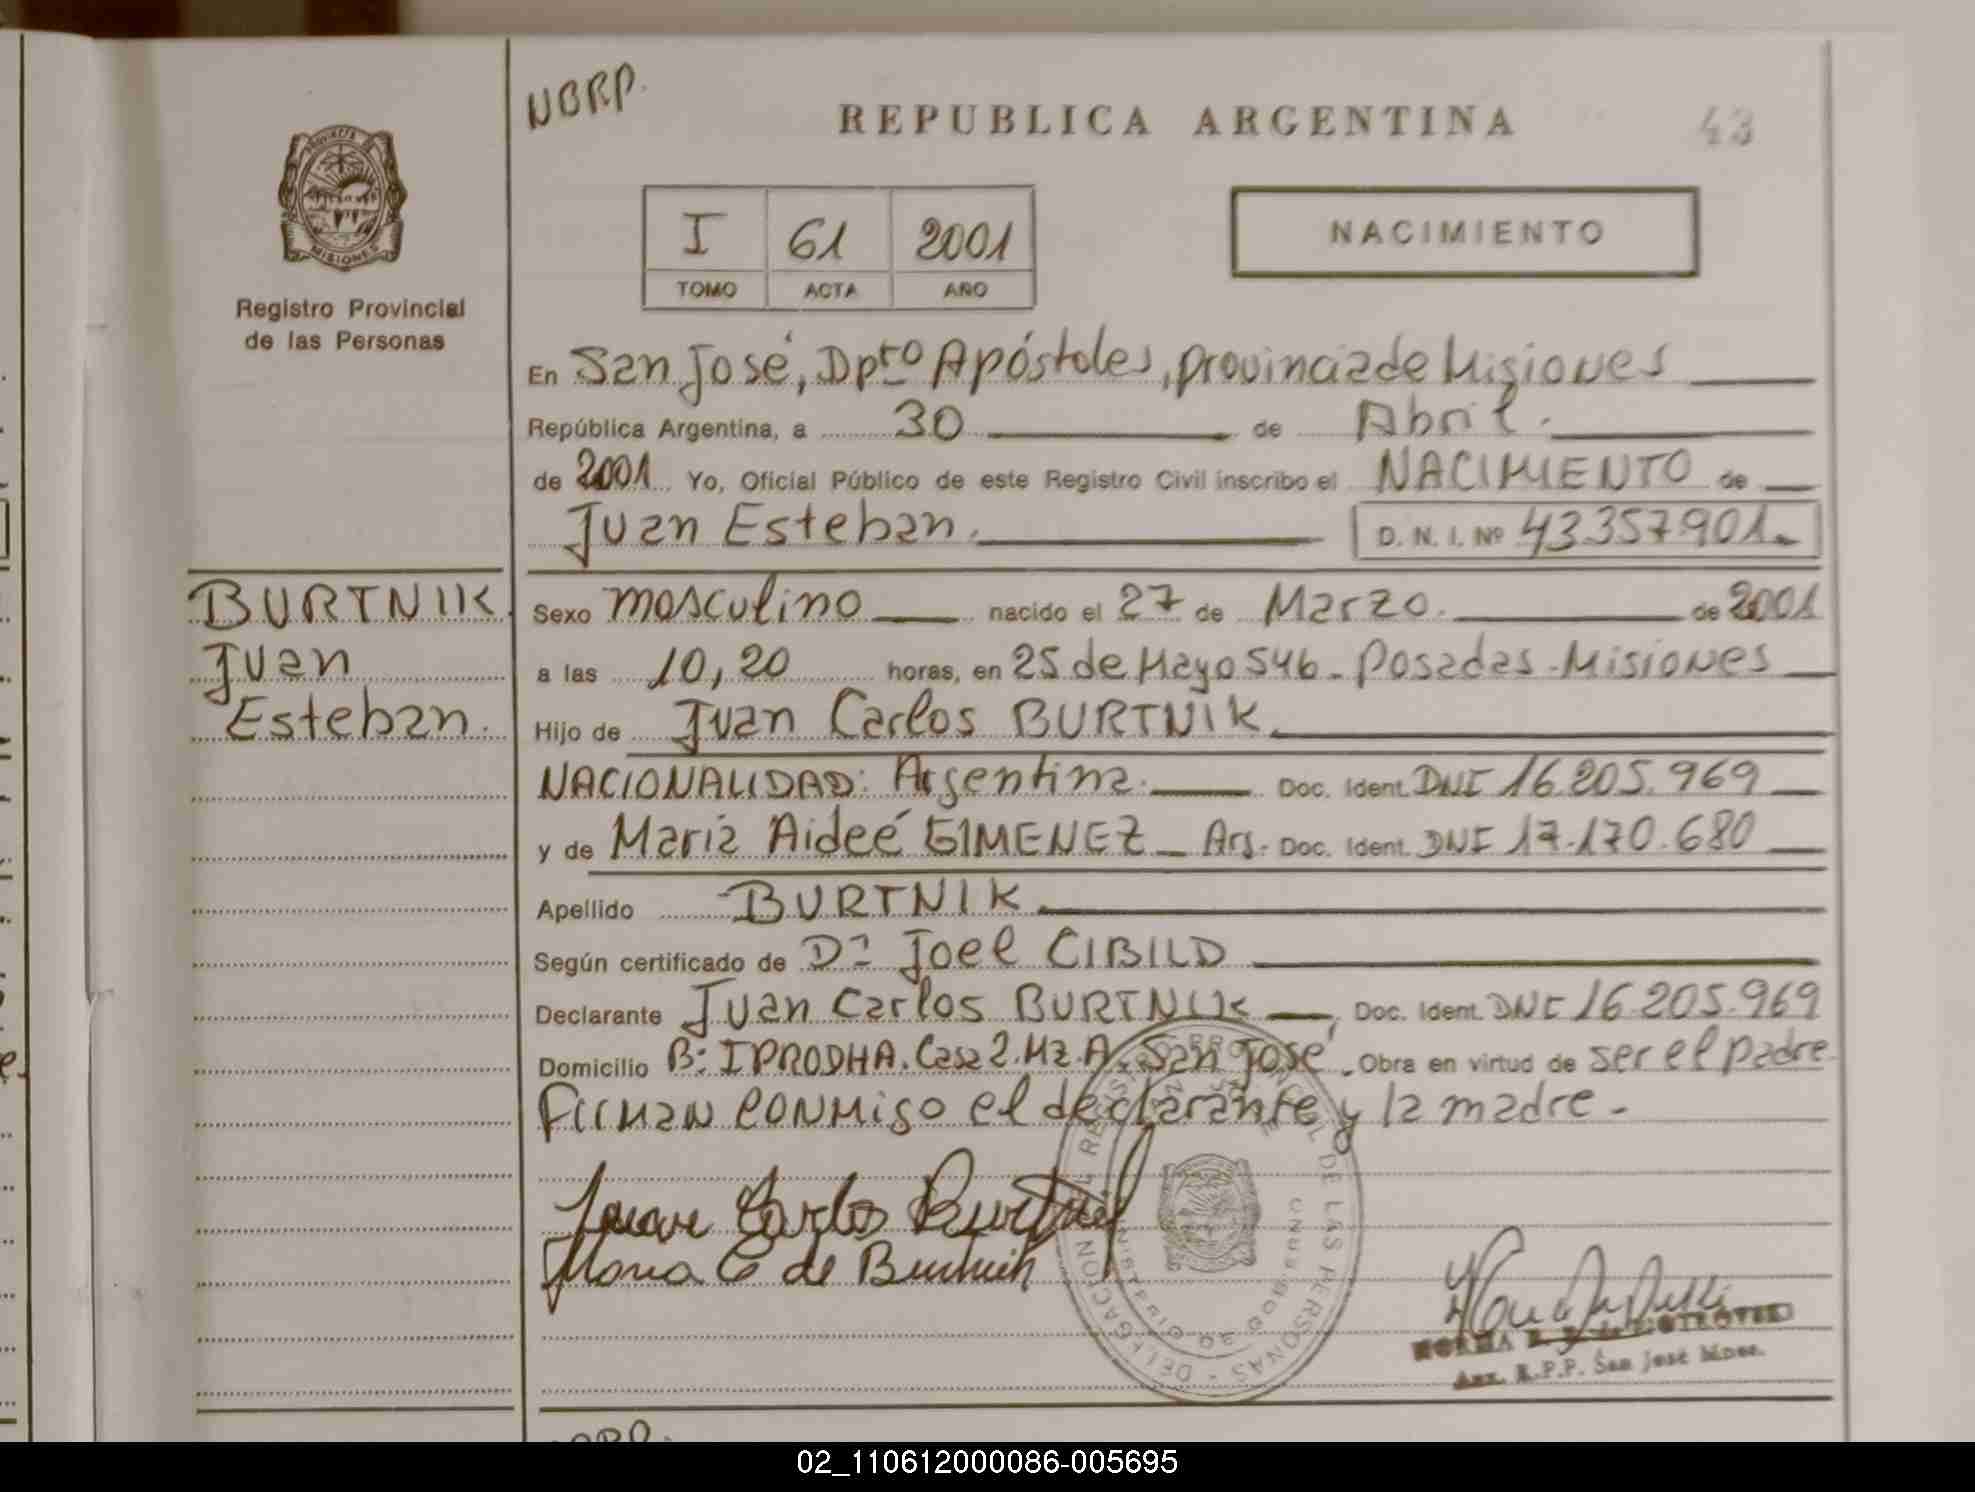 NBRP.
REPUBLICA ARGENTINA
43
PROVINCIA DE MISIONES
Registro Provincial
de las Personas
I 61 2001
TOMO ACTA AÑO
NACIMIENTO
En San José, Dpto Apóstoles, provincia de Misiones
República Argentina, a 30 de Abril.
de 2001 Yo, Oficial Público de este Registro Civil inscribo el NACIMIENTO de
Juan Esteban. D. N. I. Nº 43.357.901.
BURTNIK
Juan
Esteban.
Sexo masculino nacido el 27 de Marzo. de 2001
a las 10,20 horas, en 25 de Mayo 546 - Posadas - Misiones
Hijo de Juan Carlos BURTNIK
NACIONALIDAD: Argentina. Doc. Ident. DNI 16.205.969
y de Maria Aideé GIMENEZ - Arg. Doc. Ident. DNI 17.170.680
Apellido BURTNIK
Según certificado de Dr Joel CIBILD
Declarante Juan Carlos BURTNIK Doc. Ident. DNI 16.205.969
Domicilio B: IPRODHA. Casa 2. Mz. A. San José. Obra en virtud de ser el padre
Firman conmigo el declarante y la madre.
Juan Carlos Burtnik
Maria G de Burtnik
DELEGACION DEL REGISTRO PROVINCIAL DE LAS PERSONAS
NORMA
Aux. R.P.P. San José Mnes.
02_110612000086-005695